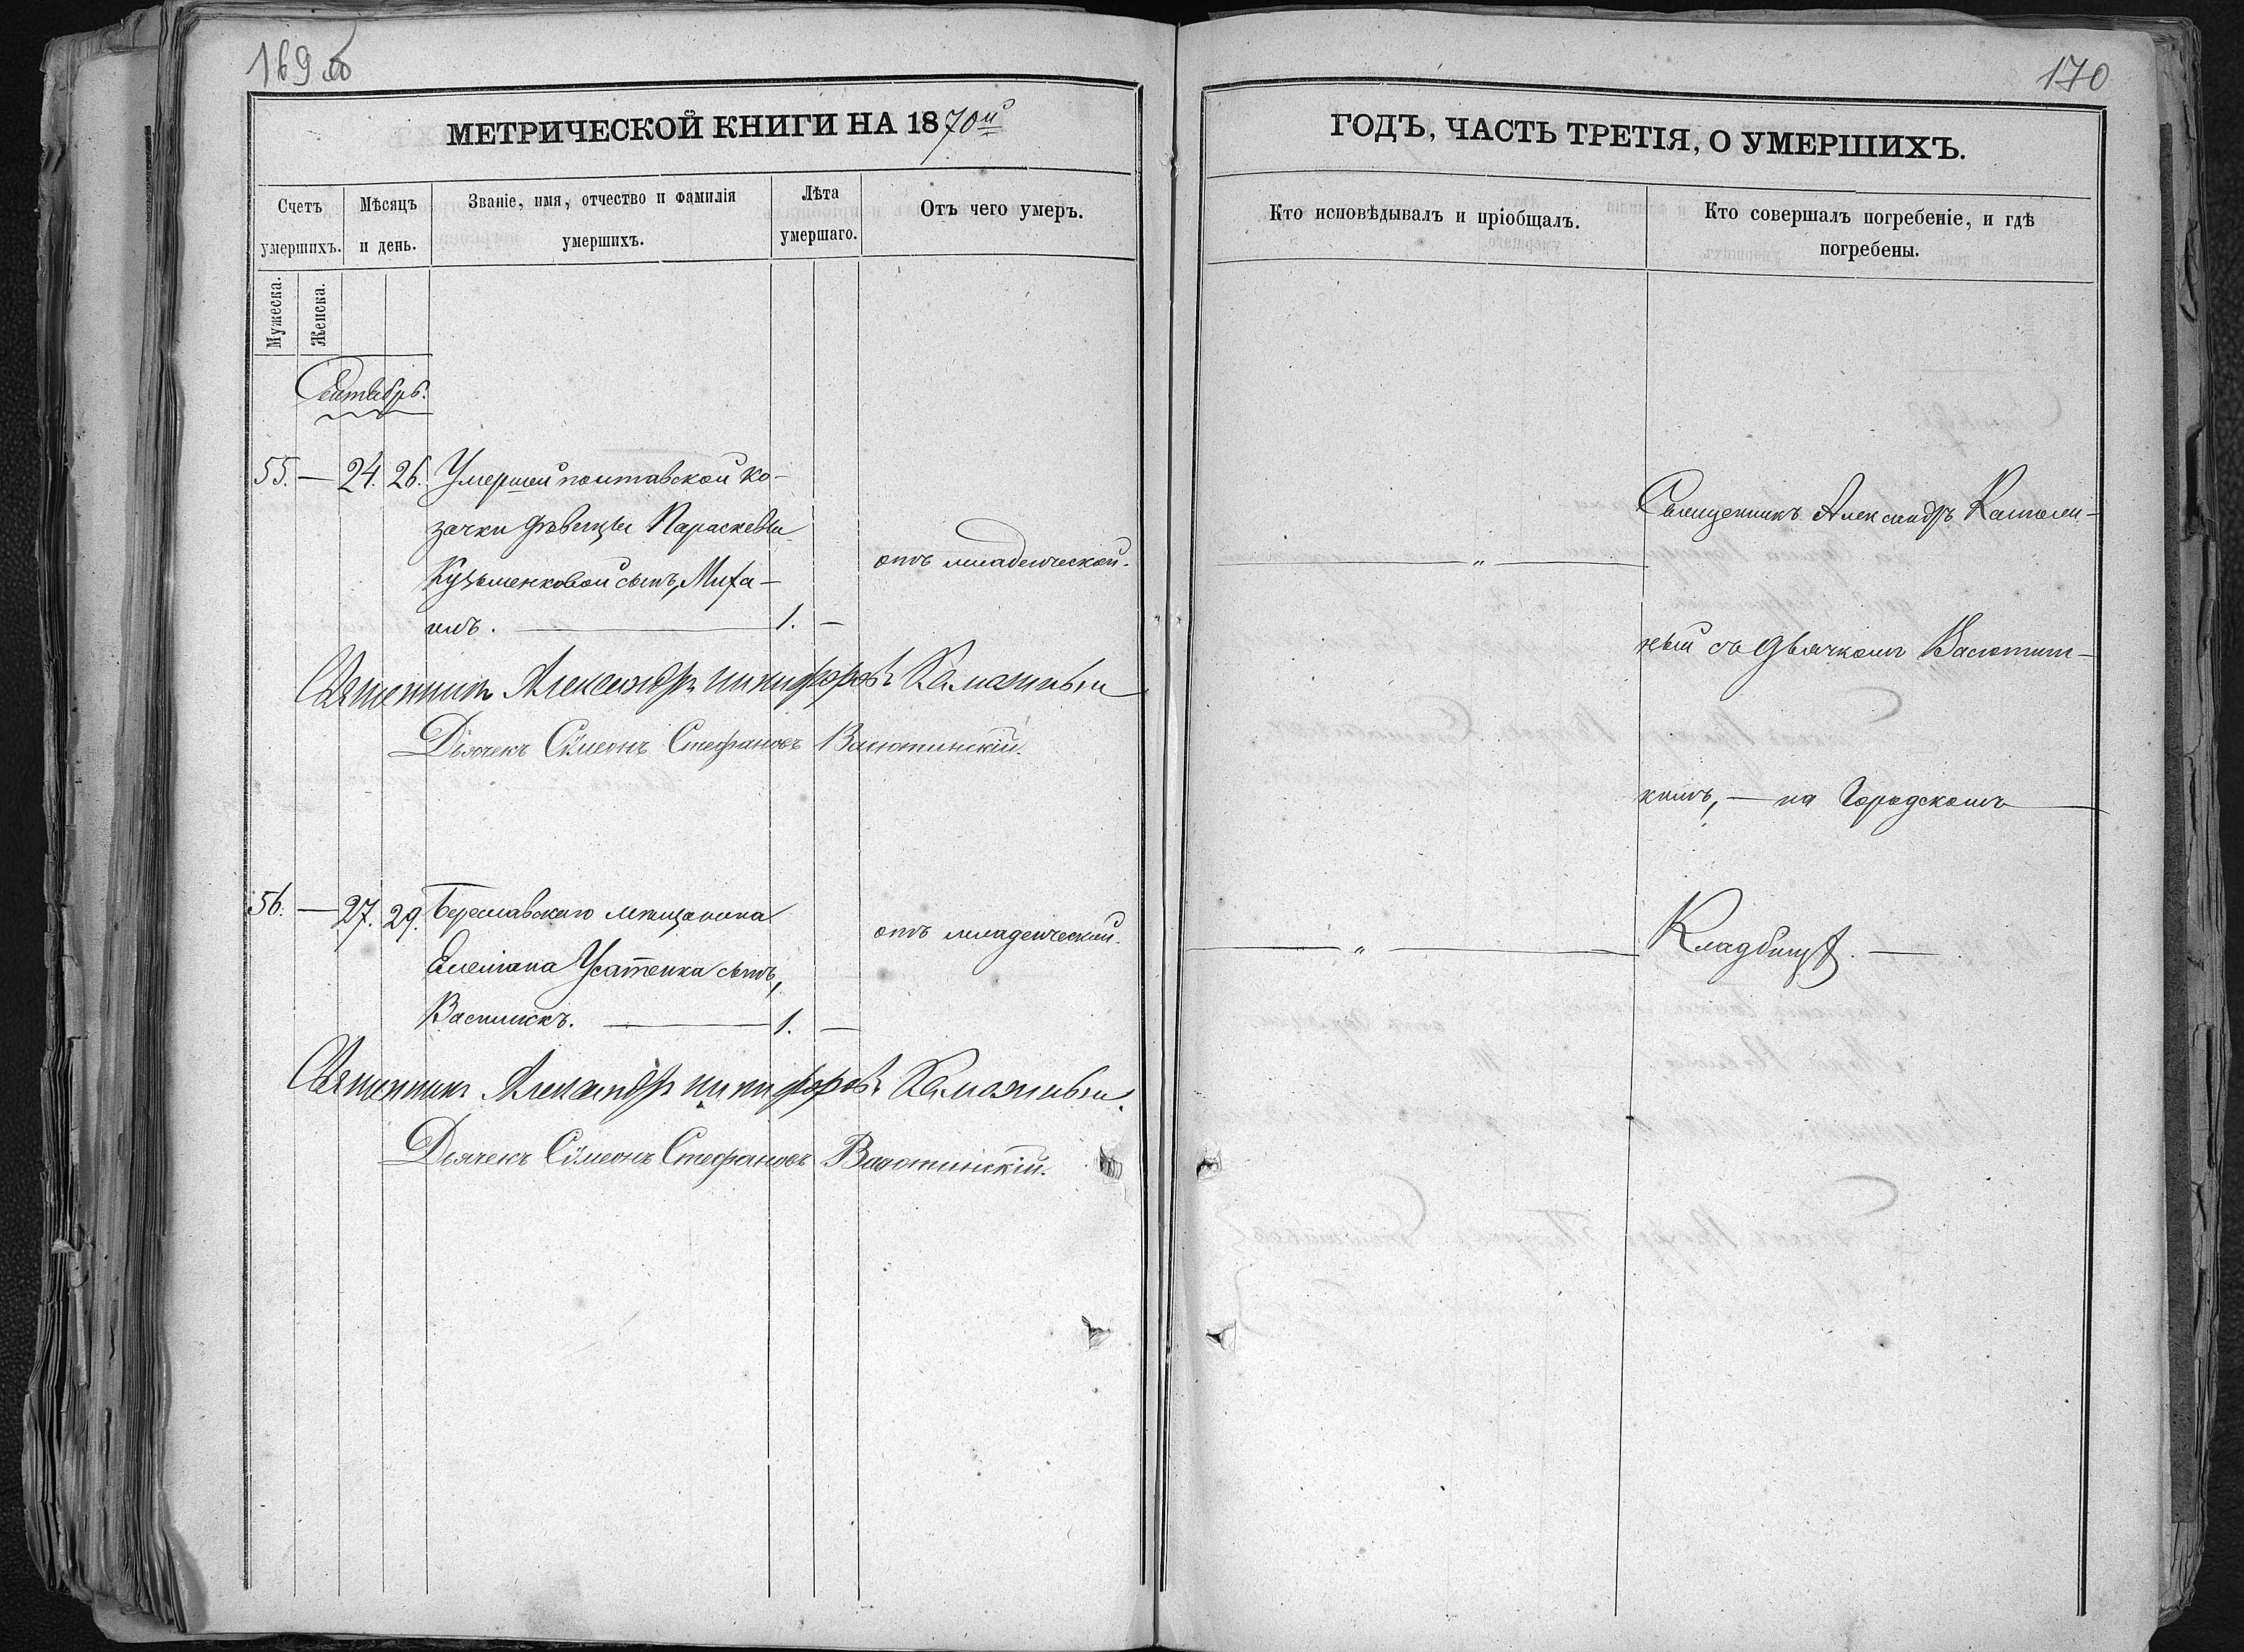 169 об
170
МЕТРИЧЕСКОЙ КНИГИ НА 1870й
ГОДЪ, ЧАСТЬ ТРЕТІЯ, О УМЕРШИХЪ.
Счетъ умершихъ.
Мѣсяцъ и день.
Званіе, имя, отчество и фамилія умершихъ.
Лѣта умершаго.
Отъ чего умеръ.
Кто исповѣдывалъ и пріобщалъ.
Кто совершалъ погребеніе, и гдѣ погребены.
Мужеска.
Женска.
Сентябрь.
55. — 24. 26. Умершей полтавской ко-
зачки дѣвицы Параскевы
Кузьменковой сынъ, Миха-
илъ. — 1. —
отъ младенческой.
Священникъ Александръ Никифоровъ
Дьячекъ Сѵмеонъ Стефановъ Васютинскій.
56. — 27. 29. Береславского мещанина
Емеліана Усатенка сынъ,
Василискъ. — 1. —
отъ младенческой.
Священникъ Александръ Никифоровъ
Дьячекъ Сѵмеонъ Стефановъ Васютинскій.
— „ —
Священникъ Александръ
ный съ дьячкомъ Васютин-
скимъ, — на Городскомъ
— „ —
Кладбищѣ. —